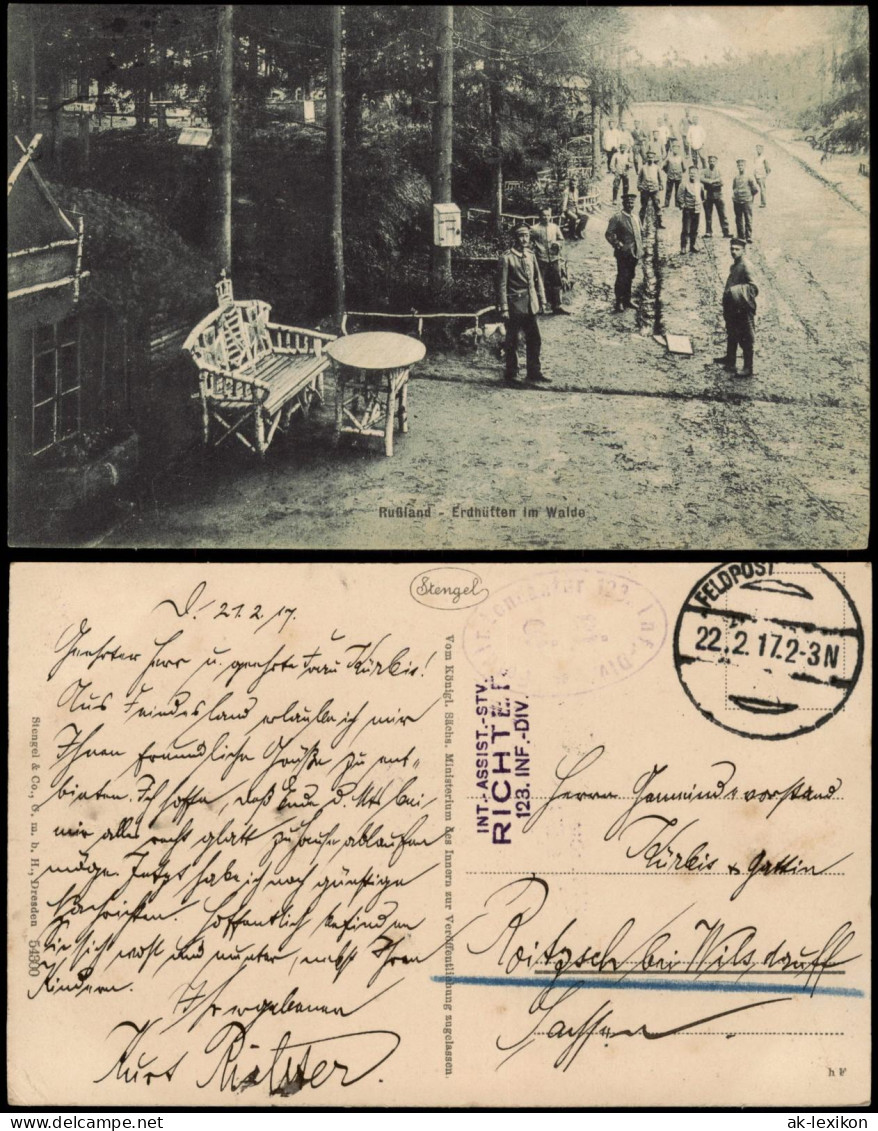 Rußland - Erdhütten im Walde
D. 21.2.17.
Geehrter Herr u. geehrte Frau Kürbis!
Aus Feindesland erlaube ich mir
Ihnen freundliche Grüße zu ent-
bieten. Ich hoffe, daß Ende d. Mts bei
mir alles recht glatt zuhause ablaufen
möge. Jetzt habe ich noch günstige
Nachrichten. Hoffentlich befinden
Sie sich wohl und munter, nebst Ihren
Kindern.
Ihr ergebener
Kurt Richter.
Stengel & Co., G. m. b. H., Dresden 54300
Stengel
Vom Königl. Sächs. Ministerium des Innern zur Veröffentlichung zugelassen.
123. Inf.-Div.
INT.-ASSIST.-STV.
RICHTER
123. INF.-DIV.
FELDPOST
22.2.17.2-3N
Herrn Gemeindevorstand
Kürbis + Gattin
Roitzsch bei Wilsdruff
Sachsen
h F
ak-lexikon.com